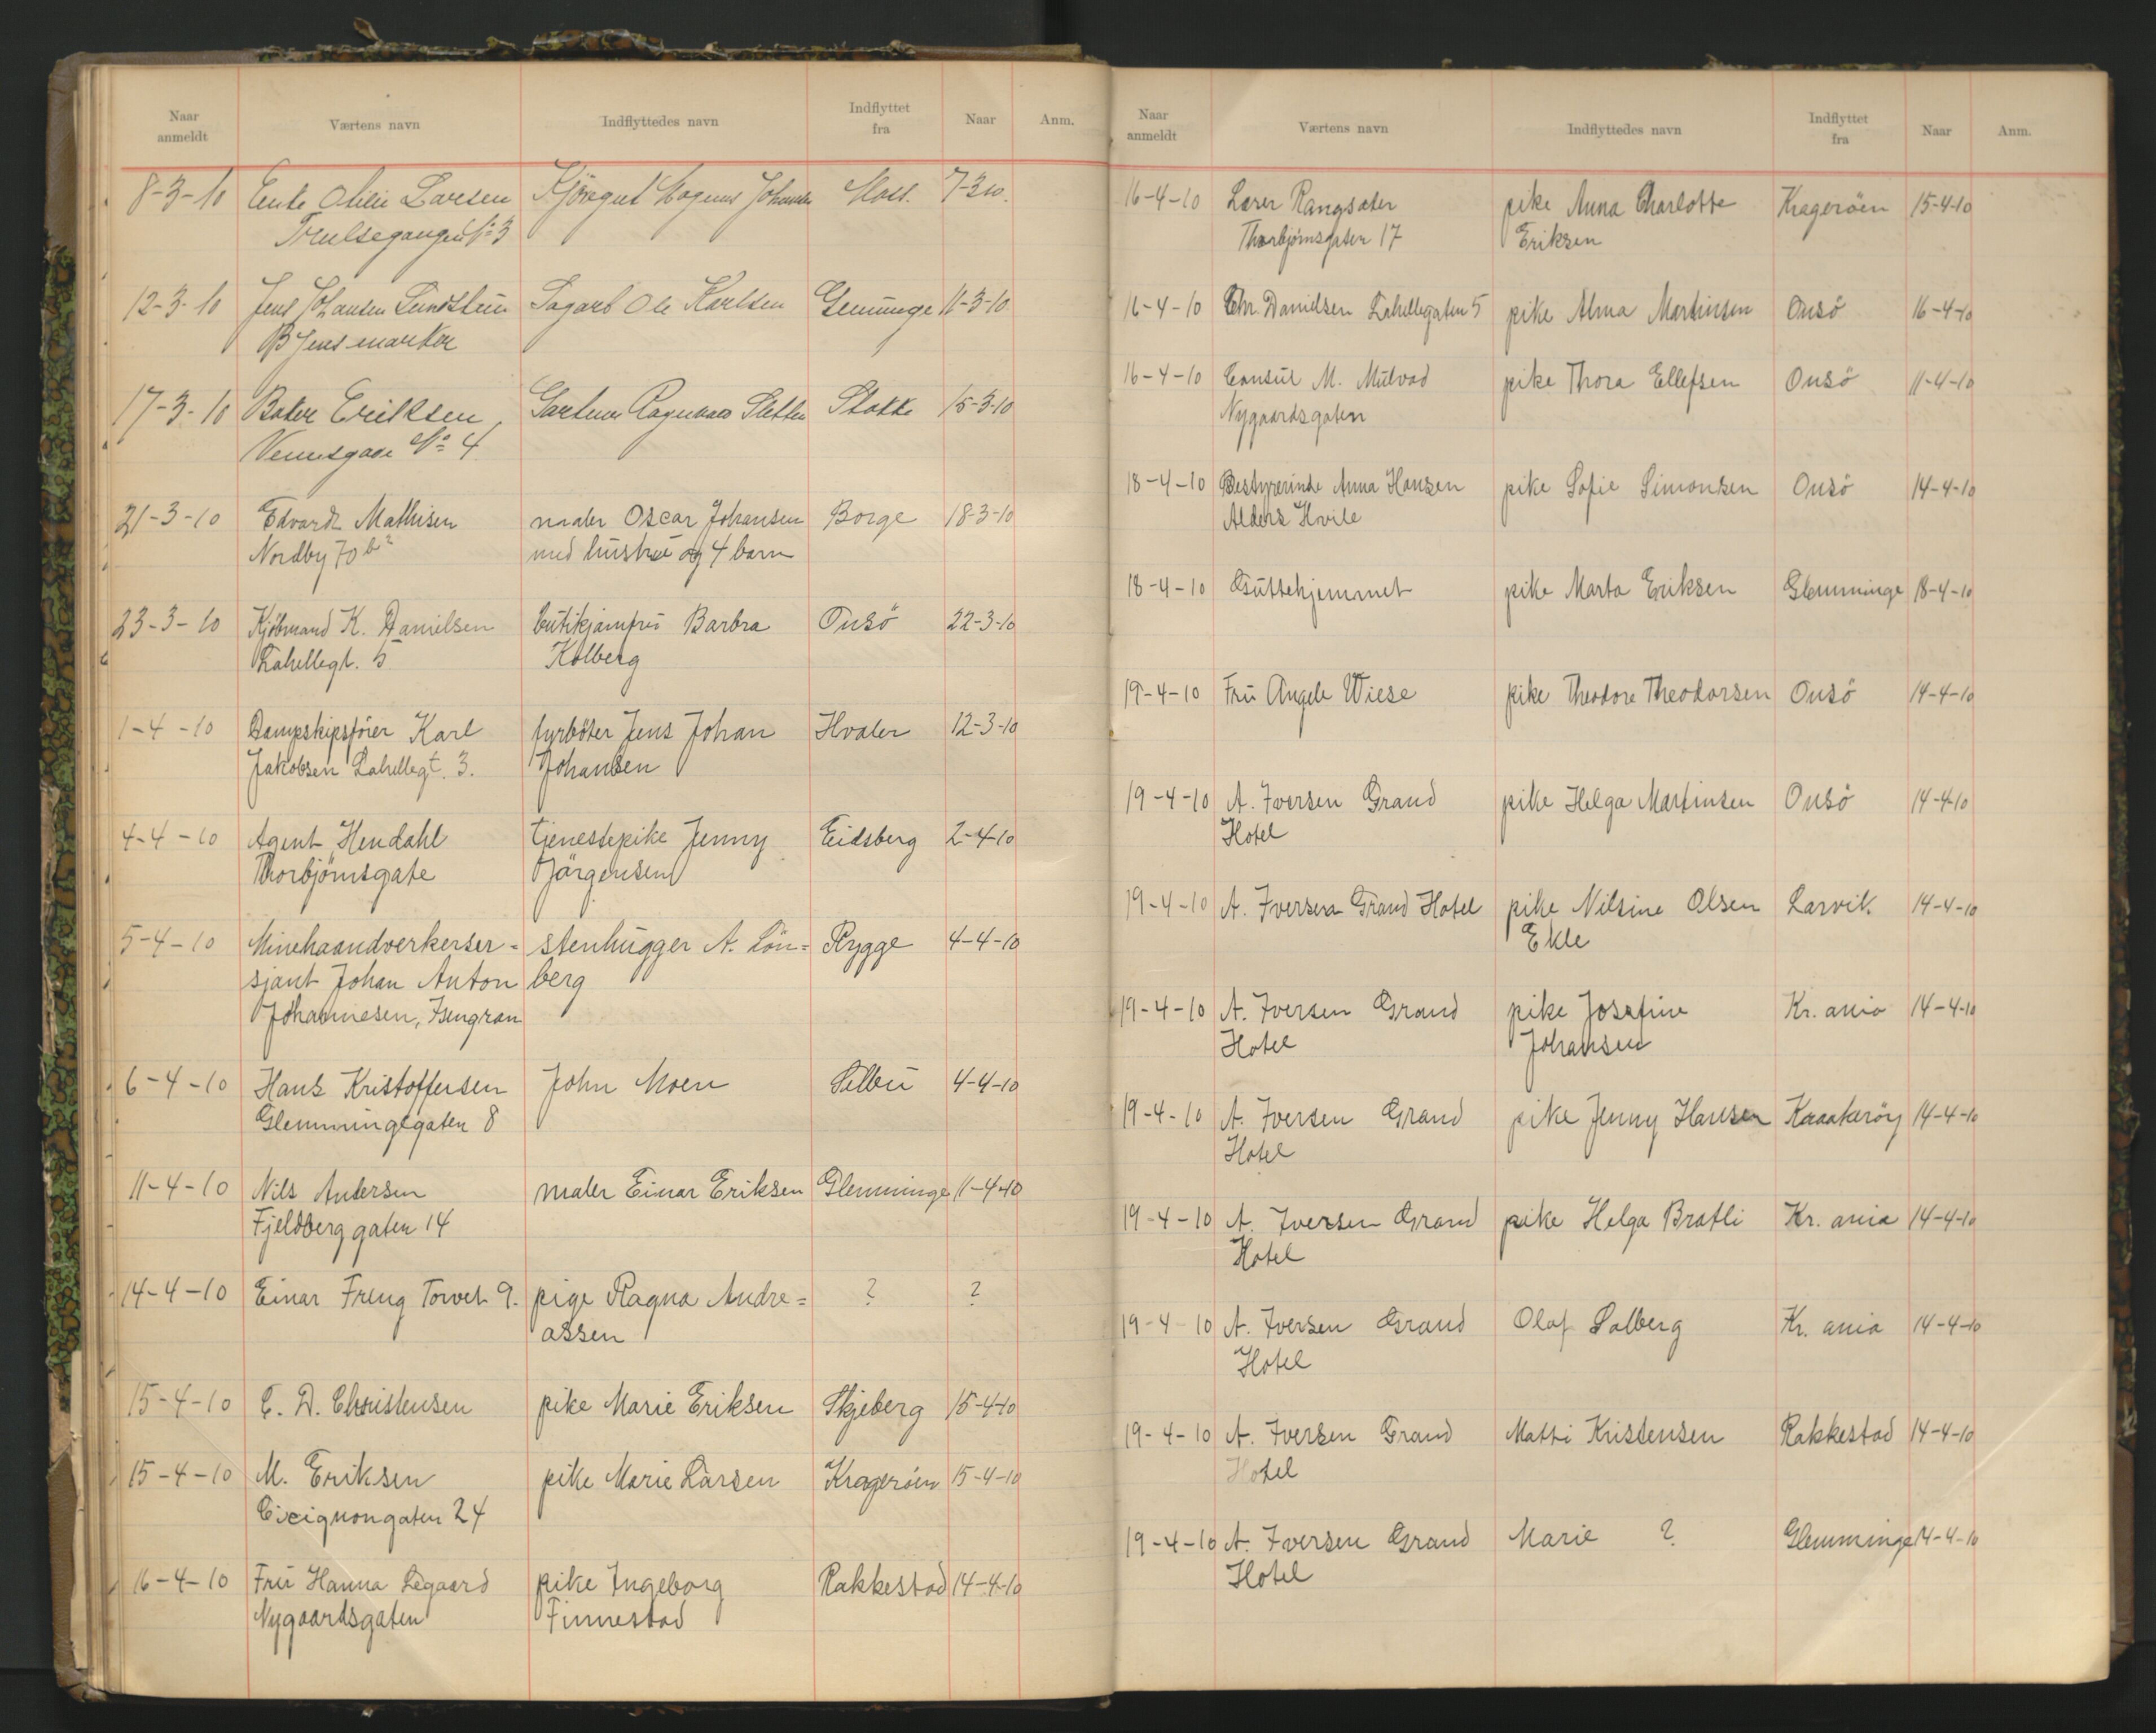 Naar anmeldt Værtens navn Indflyttedes navn Indflyttet fra Naar Anm.
8-3-10 Enke Larsen Johansen Moss. 7-3 10.
Trulsegangen No 3
12-3-10 Jens Johansen Sagarb Ole Karlsen Glemminge 11-3-10
17-3-10 Baker Eriksen Gartner Sletten Stokke 15-3-10
No 4
21-3-10 Edvard Mathisen maler Oscar Johansen Borge 18-3-10
Nordby 70 b2 med hustru og 4 barn
23-3-10 Kjöbmand K. Danielsen butikjomfru Barbra Onsö 22-3-10
Lahellegt. 5 Kolberg
1-4-10 Dampskipsförer Karl fyrböter Jens Johan Hvaler 12-3-10
Jakobsen Lahellegt. 3. Johansen
4-4-10 Agent Hendahl tjenestepike Jenny Eidsberg 2-4-10
Thorbjörnsgate Jörgensen
5-4-10 Minehaandverkerser= stenhugger A. Lön= Rygge 4-4-10
sjant Johan Anton berg
Johannesen, Isengran
6-4-10 Hans Kristoffersen John Moen Selbu 4-4-10
Glemmingegaten 8
11-4-10 Nils Andersen maler Einar Eriksen Glemminge 11-4-10
Fjeldberggaten 14
14-4-10 Einar Freng Torvet 9. pige Ragna Andre= ? ?
assen
15-4-10 C. D. Christensen pike Marie Eriksen Skjeberg 15-4-10
15-4-10 M. Eriksen pike Marie Larsen Kragerøen 15-4-10
Cicignongaten 24
16-4-10 Fru Hanna Legaard pike Ingeborg Rakkestad 14-4-10
Nygaardsgaten Finnestad
Naar anmeldt Værtens navn Indflyttedes navn Indflyttet fra Naar Anm.
16-4-10 Lærer Rangsæter pike Anna Charlotte Kragerøen 15-4-10
Thorbjörnsgaten 17 Eriksen
16-4-10 Chr. Danielsen Lahellegaten 5 pike Alma Martinsen Onsö 16-4-10
16-4-10 Consul M. Mutvad pike Thora Ellefsen Onsö 11-4-10
Nygaardsgaten
18-4-10 Bestyrerinde Anna Hansen pike Sofie Simonsen Onsö 14-4-10
Alders Hvile
18-4-10 Guttehjemmet pike Marta Eriksen Glemminge 18-4-10
19-4-10 Fru Angele Wiese pike Theodore Theodorsen Onsö 14-4-10
19-4-10 A. Iversen Grand pike Helga Martinsen Onsö 14-4-10
Hotel
19-4-10 A. Iversen Grand Hotel pike Nilsine Olsen Larvik 14-4-10
Ekle
19-4-10 A. Iversen Grand pike Josefine Kr. ania 14-4-10
Hotel Johansen
19-4-10 A. Iversen Grand pike Jenny Hansen 14-4-10
Hotel
19-4-10 A. Iversen Grand pike Helga Bratli Kr. ania 14-4-10
Hotel
19-4-10 A. Iversen Grand Olaf Solberg Kr. ania 14-4-10
Hotel
19-4-10 A. Iversen Grand Matti Kristensen Rakkestad 14-4-10
Hotel
19-4-10 A. Iversen Grand Marie ? Glemminge 14-4-10
Hotel